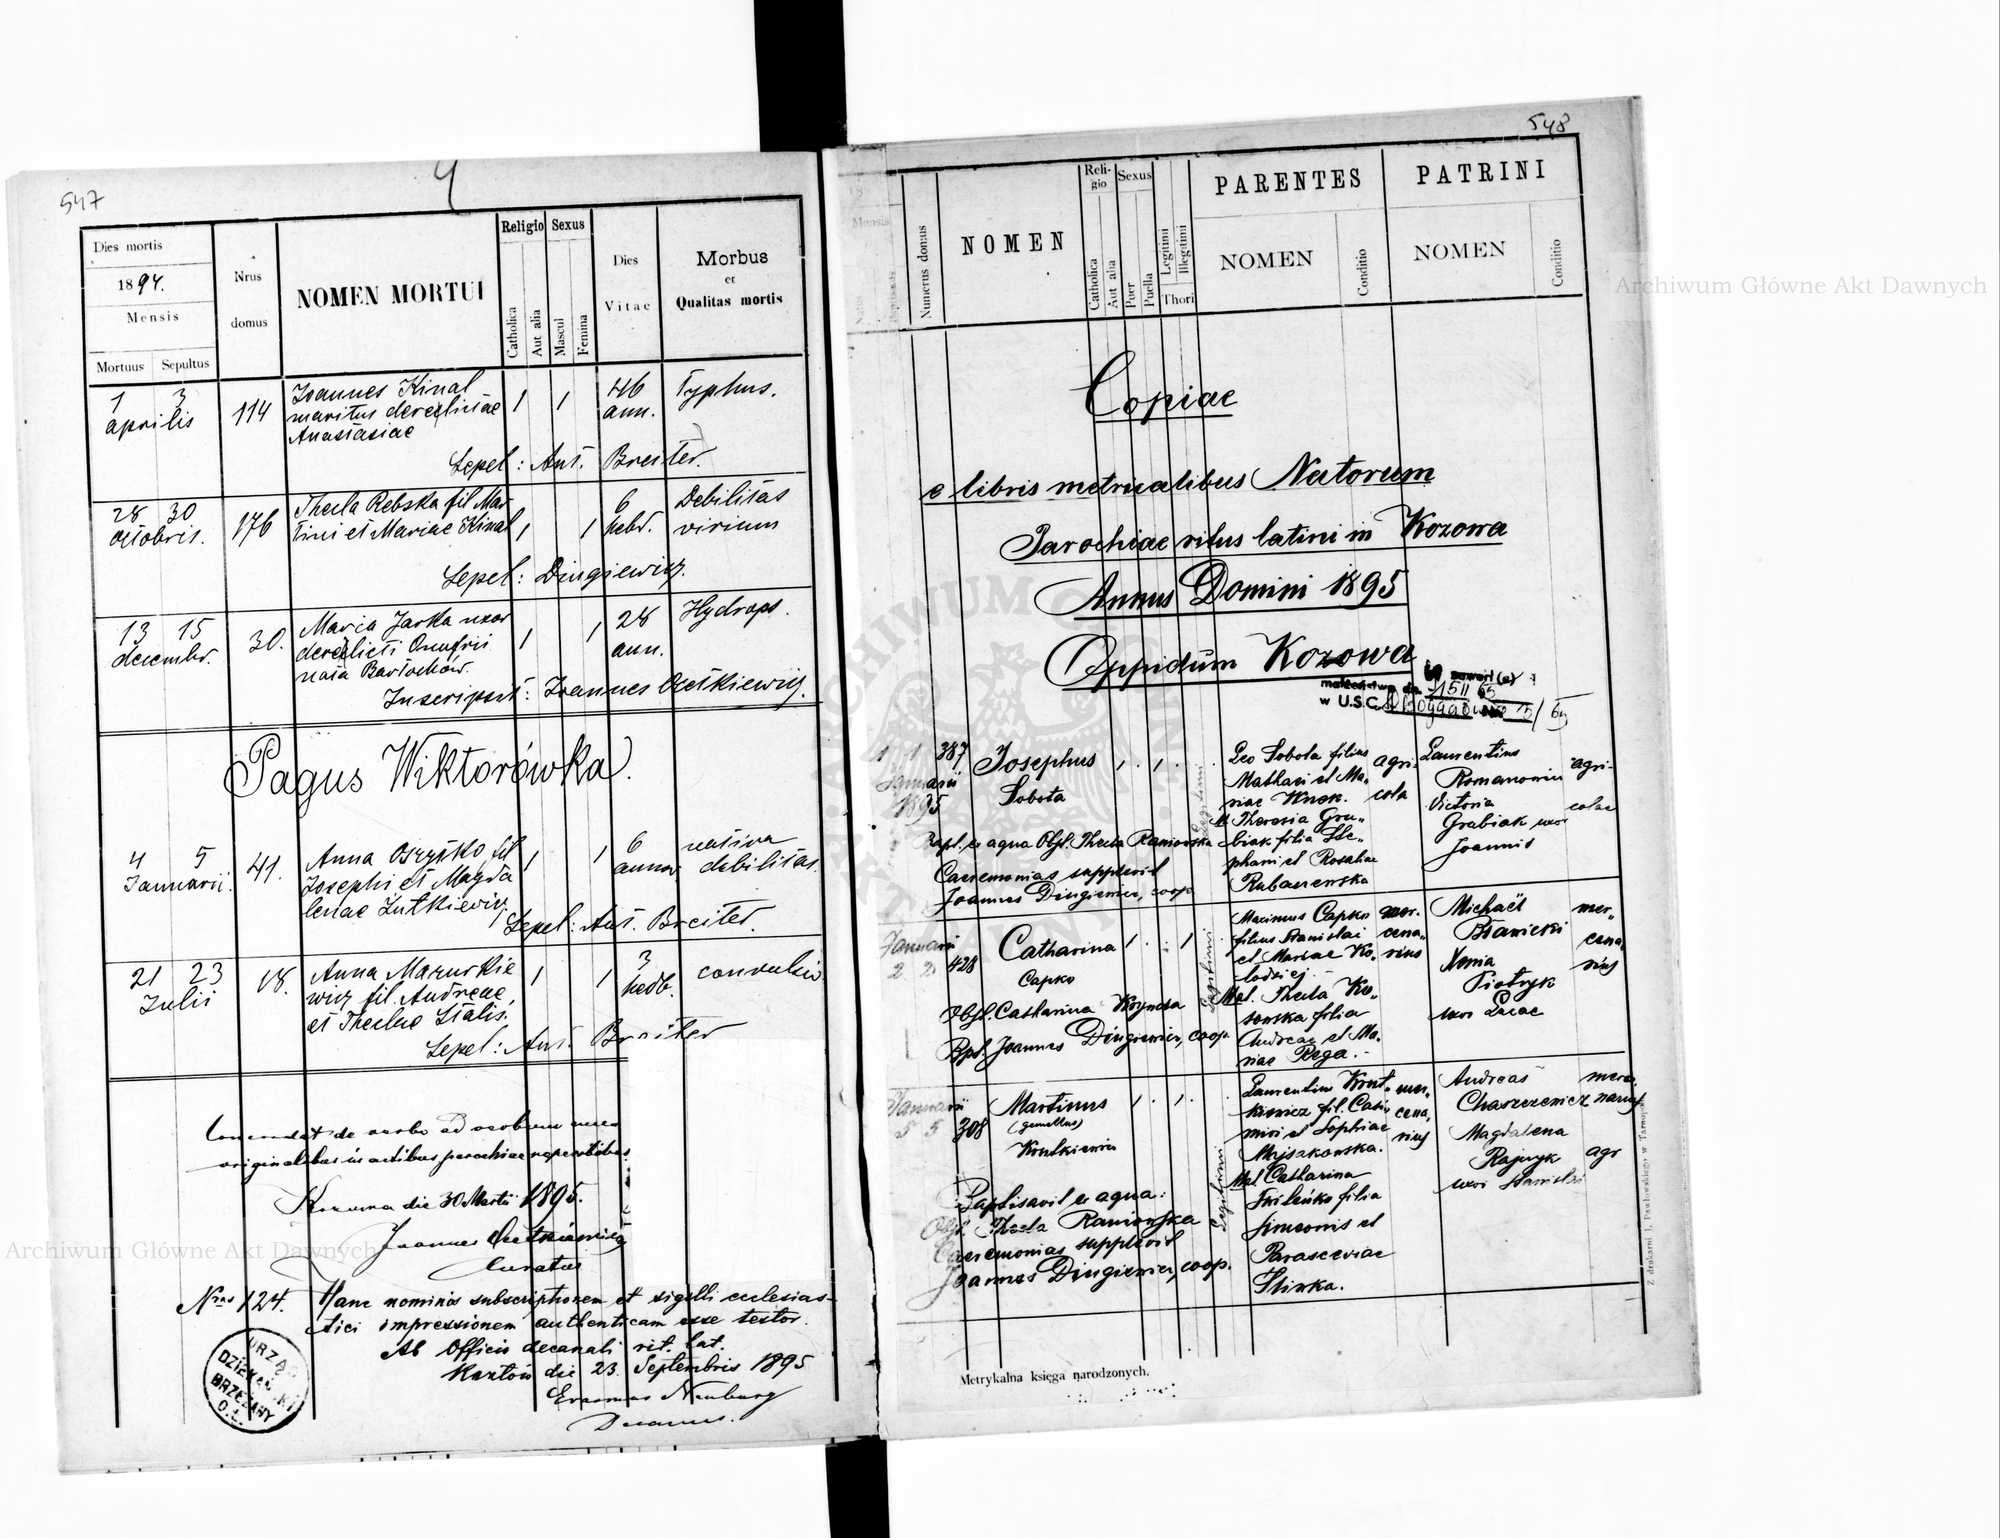 547
4
Dies mortis
1894.
Mensis
Mortuus Sepultus
Nrus
domus
NOMEN MORTUI
Religio
Catholica
Aut alia
Sexus
Mascul
Femina
Dies
Vitae
Morbus
et
Qualitas mortis
1 3
aprilis
114
Joannes Kinal
maritus derelictae
Anastasiae
1 1
46
ann.
Typhus.
Sepel: Ant. Breiter.
28 30
octobris.
176
Thecla Rebska fil Mar
tini et Mariae Kinal
1 1
6
hebd.
Debilitas
virium
Sepel: Dingiewicz.
13 15
decembr.
30.
Maria Jarka uxor
derelicti Onufrii
nata
1 1
28
ann.
Hydrops.
Inscripsit: Joannes
Pagus Wiktorówka.
4 5
Januarii.
41.
Anna fil
Josephi et Magda
lenae Lutkiewicz
1 1
6
nativa
debilitas.
Sepel: Ant. Breiter.
21 23
Julii
18.
Anna Mazurkie
wicz fil. Andreae
et Theclae Stalis.
1 1
3
hedb.
convulsio
Sepel: Ant. Breiter
Concordat de verbo ad verbum cum
originalibus in actibus parochiae
Kozowa die 30 Martii 1895.
Joannes
Curatus
Nrus 124. Hanc nominis subscriptionem et sigilli ecclesias-
tici impressionem authenticam esse testor.
Ab Officio decanali rit. lat.
die 23. Septembris 1895
Erasmus Neuburg
Decanus.
URZĄD
DZIEKAŃSKI
BRZEŻANY
O.Ł.
548
Mensis
Numerus domus
NOMEN
Reli-
gio
Catholica
Aut alia
Sexus
Puer
Puella
Legitimi
Illegitimi
Thori
PARENTES
NOMEN
Conditio
PATRINI
NOMEN
Conditio
Copiae
e libris metricalibus Natorum
Parochiae ritus latini in Kozowa
Annus Domini 1895
Oppidum Kozowa
zawarł (a)
małżeństwo dn.
w U.S.C.
1 1
Januarii
1895
387
Josephus
Sobota
Legitimi
Leo Sobota filius
Mathaei et Ma-
riae Wnek.
M. Theresia Gru-
biak filia Ste-
phani et Rosaliae
Rubaszewska
agri-
cola
Laurentius
Romanowicz
Victoria
Grabiak uxor
Joannis
agri-
colae
Bapt. ex aqua Obst. Thecla Raniowska
Caeremonias supplevit
Joannes Dingiewicz, coop.
Januarii
2 2
428
Catharina
Capko
Legitimi
Maximus Capko
filius Stanislai
et Mariae Ko-
lodziej
Mat. Thecla Ko-
sowska filia
Andreae et Ma-
riae Rega.
mer-
cena-
rius
Michaël
Blawicki
Xenia
Piotryk
uxor Lucae
mer-
cena-
rius
Obst. Catharina Krynda
Bpt. Joannes Dingiewicz, coop.
Januarii
5 5
308
Martinus
(gemellus)
Krutkiewicz
Legitimi
Laurentius Krut-
kiewicz fil. Casi-
miri et Sophiae
Majzakowska.
Mat. Catharina
filia
Simeonis et
Parasceviae
Slivka.
mer-
cena-
rius
Andreas
Charzczewicz
Magdalena
Rajzyk
uxor Stanislai
agr
Baptisavit ex aqua:
Obst. Thecla Raniowska
Caeremonias supplevit
Joannes Dingiewicz, coop.
Metrykalna księga narodzonych.
Z drukarni J. Pawłowskiego w Tarnopolu
Archiwum Główne Akt Dawnych
Archiwum Główne Akt Dawnych